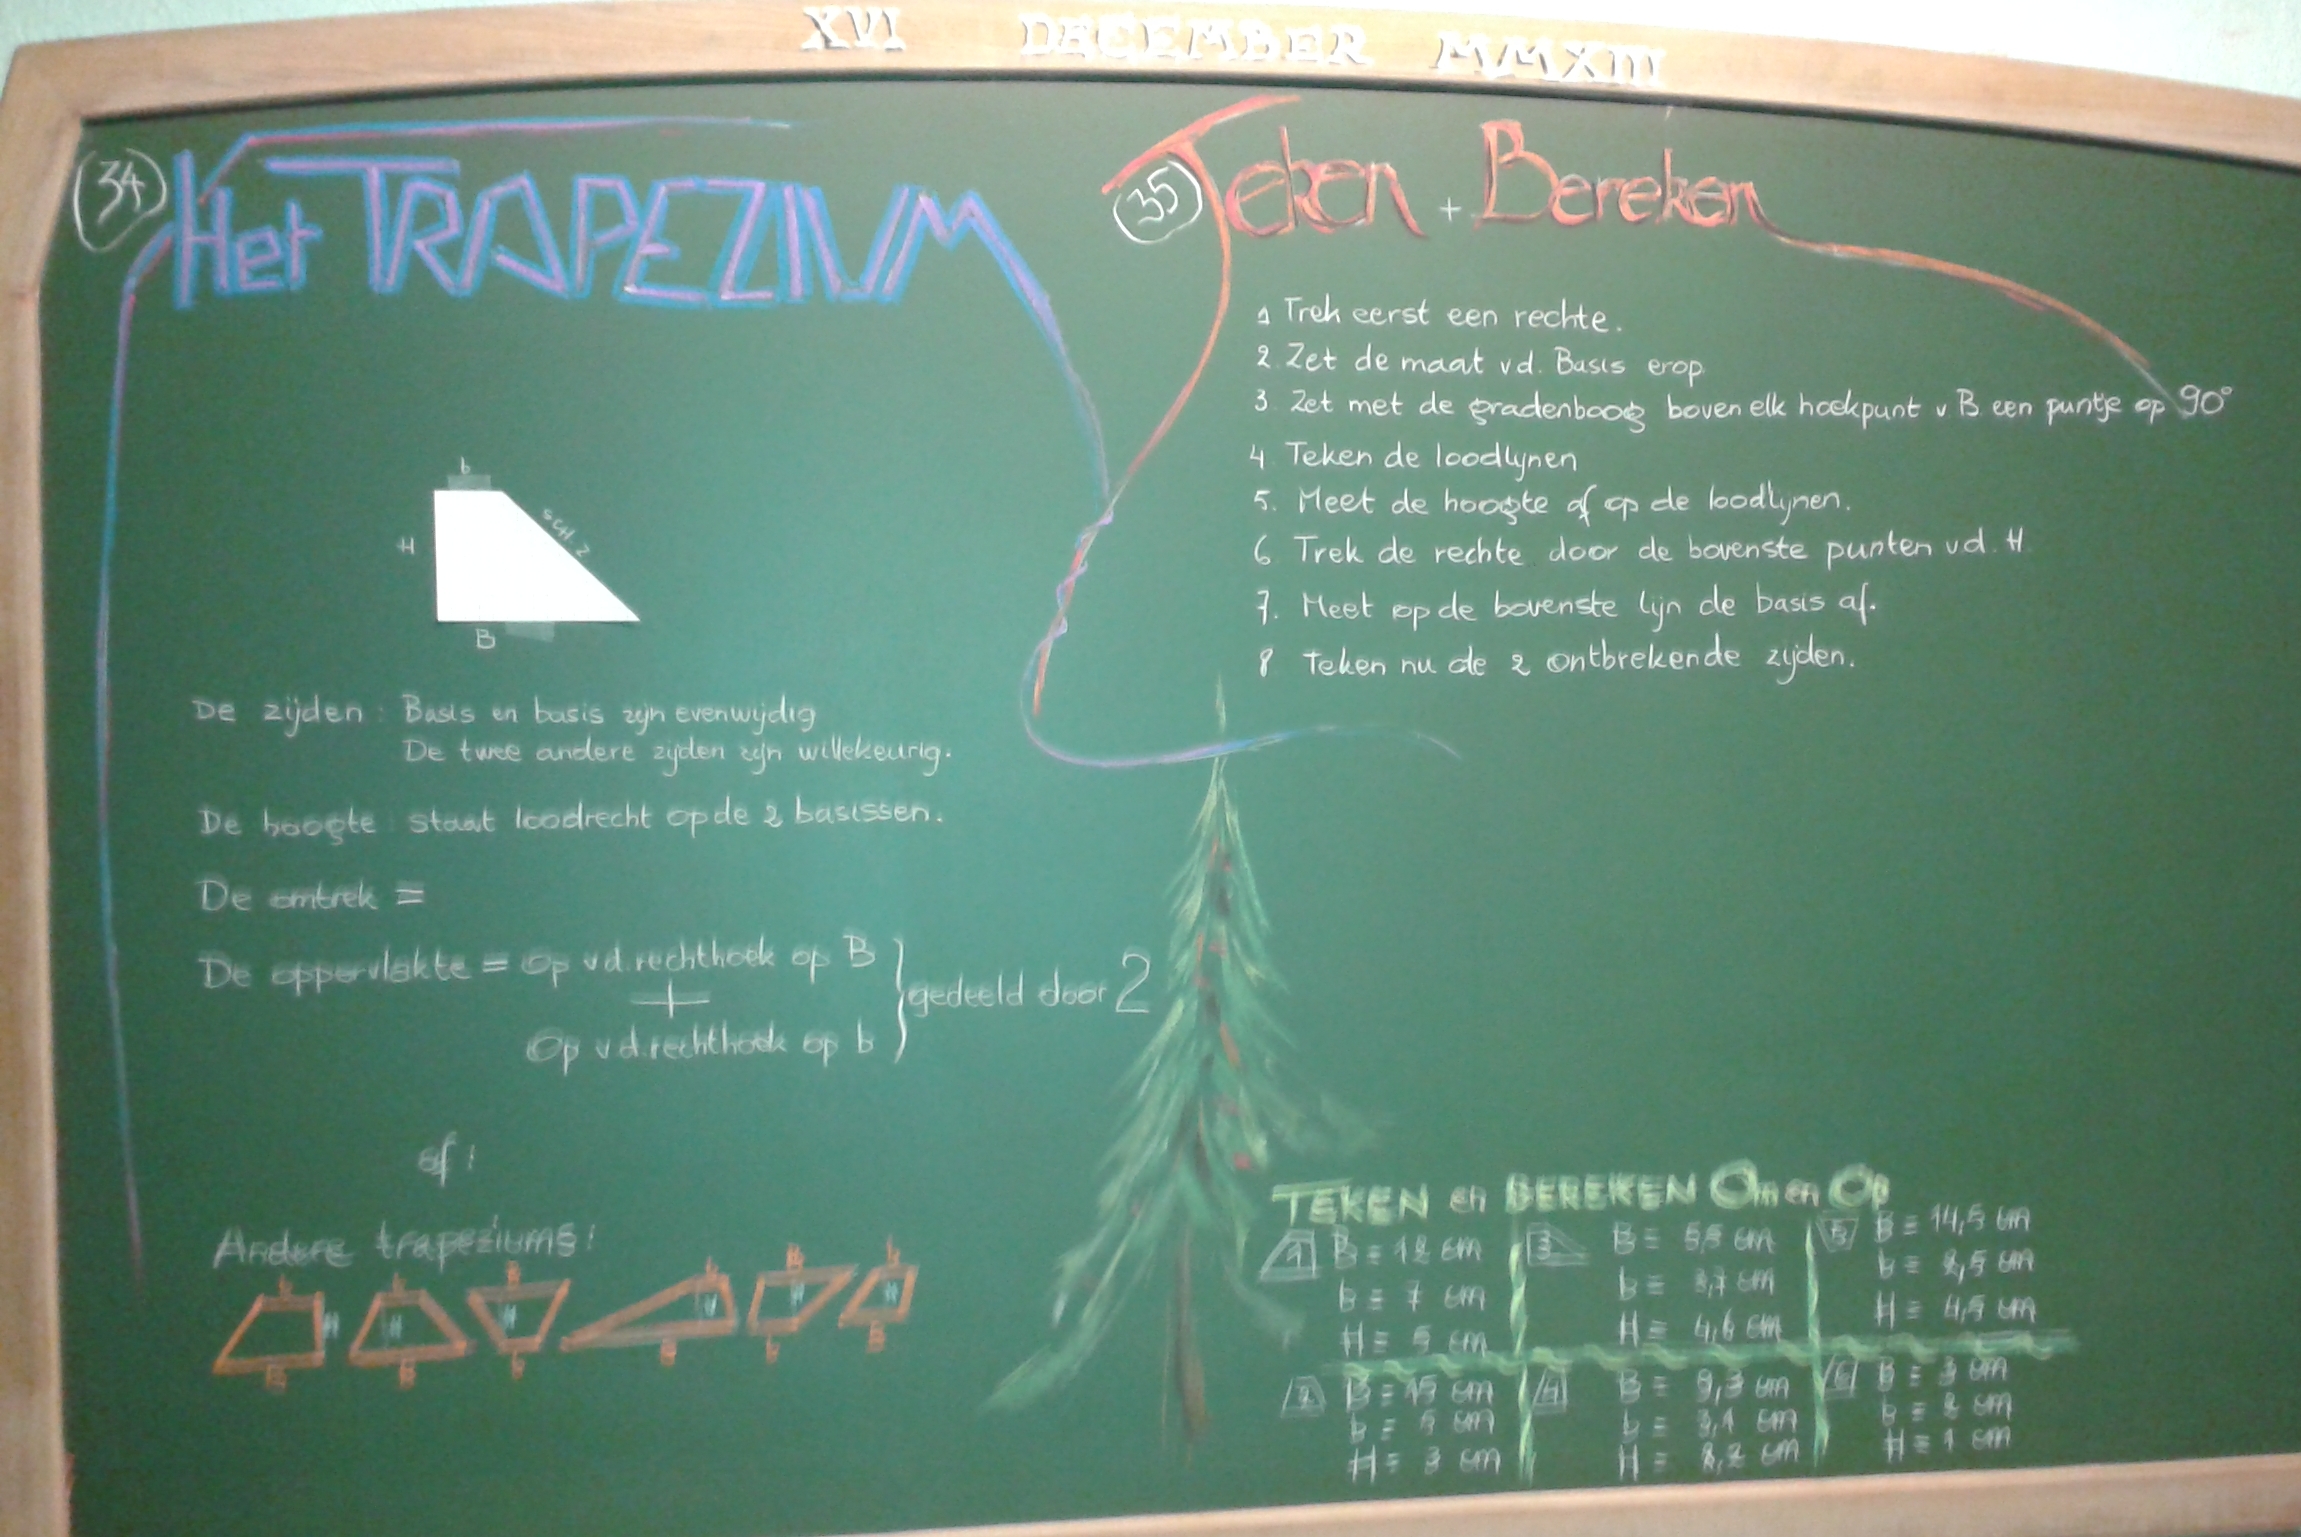 XVI DECEMBER MMXIII
34 Het TRAPEZIUM
b
H
SCH. Z
B
De zijden : Basis en basis zijn evenwijdig
De twee andere zijden zijn willekeurig.
De hoogte : staat loodrecht op de 2 basissen.
De omtrek =
De oppervlakte = Op vd. rechthoek op B
+
Op vd. rechthoek op b
} gedeeld door 2
of :
Andere trapeziums :
b b B b B b
H H H H H H
B B b B b B
35 Teken + Bereken
1 Trek eerst een rechte.
2. Zet de maat vd. Basis erop
3. Zet met de gradenboog boven elk hoekpunt v. B een puntje op 90°
4 Teken de loodlijnen
5. Meet de hoogte af op de loodlijnen.
6 Trek de rechte door de bovenste punten vd. H
7. Meet op de bovenste lijn de basis af.
8 Teken nu de 2 ontbrekende zijden.
TEKEN en BEREKEN Om en Op
1 B = 12 cm
b = 7 cm
H = 5 cm
2 B = 15 cm
b = 5 cm
H = 3 cm
3 B = 5,5 cm
b = 3,7 cm
H = 4,6 cm
4 B = 9,3 cm
b = 3,1 cm
H = 2,2 cm
5 B = 14,5 cm
b = 2,5 cm
H = 4,5 cm
6 B = 3 cm
b = 2 cm
H = 1 cm